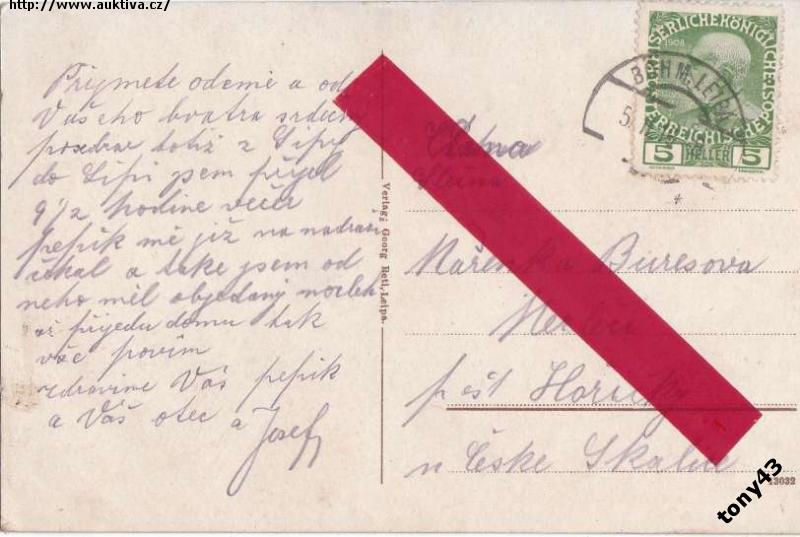 http://www.auktiva.cz/
Přijmete odemě a od
Vašeho bratra srdečný
pozdrav totiž z Lípy
do Lípi jsem přijel
9 1/2 hodine večer
pepík mě již na nadraži
čekal a take jsem od
neho měl objedaný nocleh
až přijedu domu tak
vác povím
zdravime Vás pepík
a Váš otec a Josef
Verlag: Georg Reti, Leipa.
SERLICHEKÖNIGLICHE
1908
ÖSTERREICHISCHEPOST
5 HELLER 5
BÖHM. LEIPA
Slečna
Mařenka Buresova
p ešt Hořičky
u České Skalice
13032
tony43